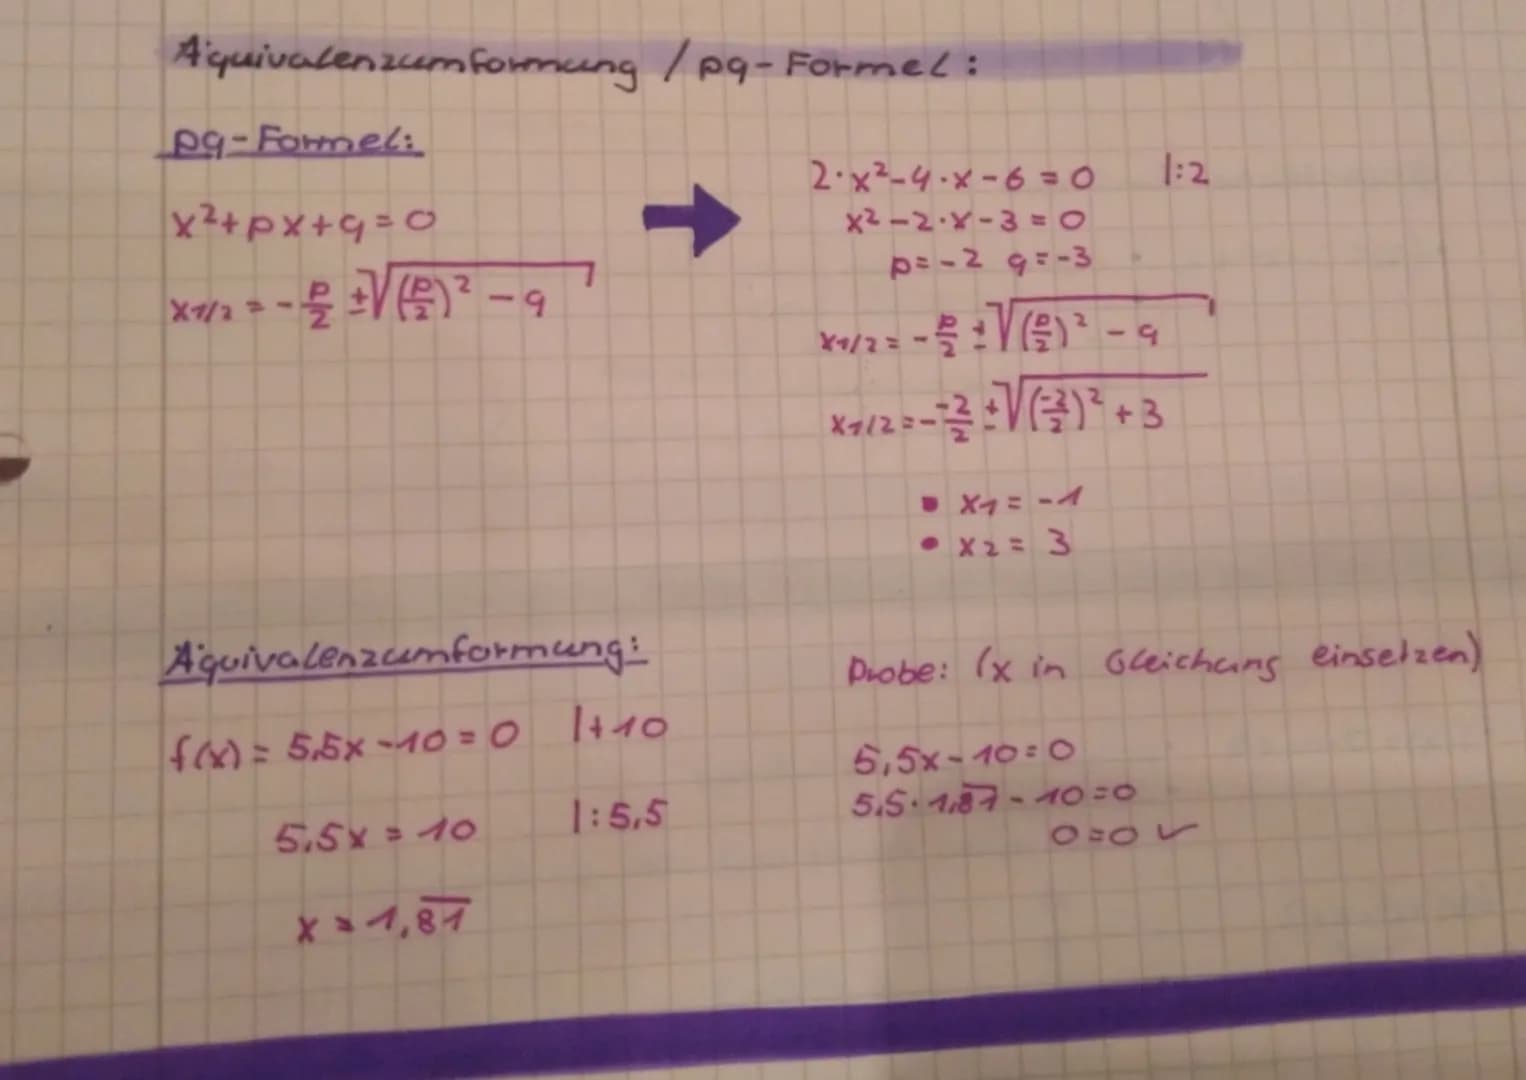 Äquivalenzumformung / pq-Formel:
pq-Formel:
x²+px+q=0
x1/2 = -p/2 ±√((p/2)² - q)
2·x²-4·x-6=0 |:2
x²-2·x-3=0
p=-2 q=-3
x1/2 = -p/2 ±√((p/2)² - q)
x1/2 = --2/2 ±√((-2/2)² + 3)
• x1 = -1
• x2 = 3
Äquivalenzumformung:
f(x) = 5,5x-10=0 |+10
5,5x = 10 |:5,5
x = 1,8̅1̅
Probe: (x in Gleichung einsetzen)
5,5x-10=0
5,5·1,8̅1̅-10=0
0=0 ✓